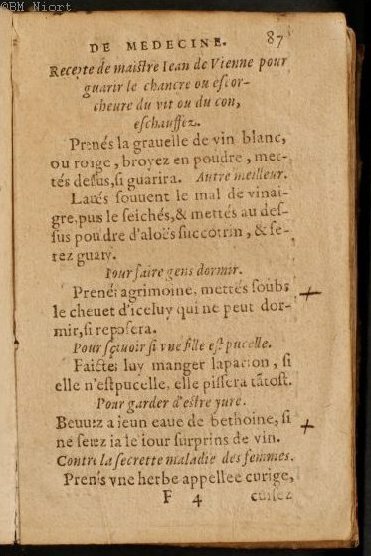 ©BM Niort
DE MEDECINE. 87
Recepte de maistre Iean de Vienne pour
guarir le chancre ou escor-
cheure du vit ou du con,
eschauffez.
Prenés la grauelle de vin blanc,
ou rouge, broyez en poudre, met-
tés dessus, si guarira. Autre meilleur.
Laués souuent le mal de vinai-
gre, puis le seichés, & mettés au des-
sus poudre d'aloës succotrin, & se-
rez guary.
Pour faire gens dormir.
Prenés agrimoine, mettés soubs
le cheuet d'iceluy qui ne peut dor-
mir, si reposera.
Pour sçauoir si vne fille est pucelle.
Faictes luy manger laparion, si
elle n'est pucelle, elle pissera tãtost.
Pour garder d'estre yure.
Beuuez a ieun eaue de bethoine, si
ne serez ia le iour surprins de vin.
Contre la secrette maladie des femmes.
Prenés vne herbe appellee curige,
F 4 cuisez